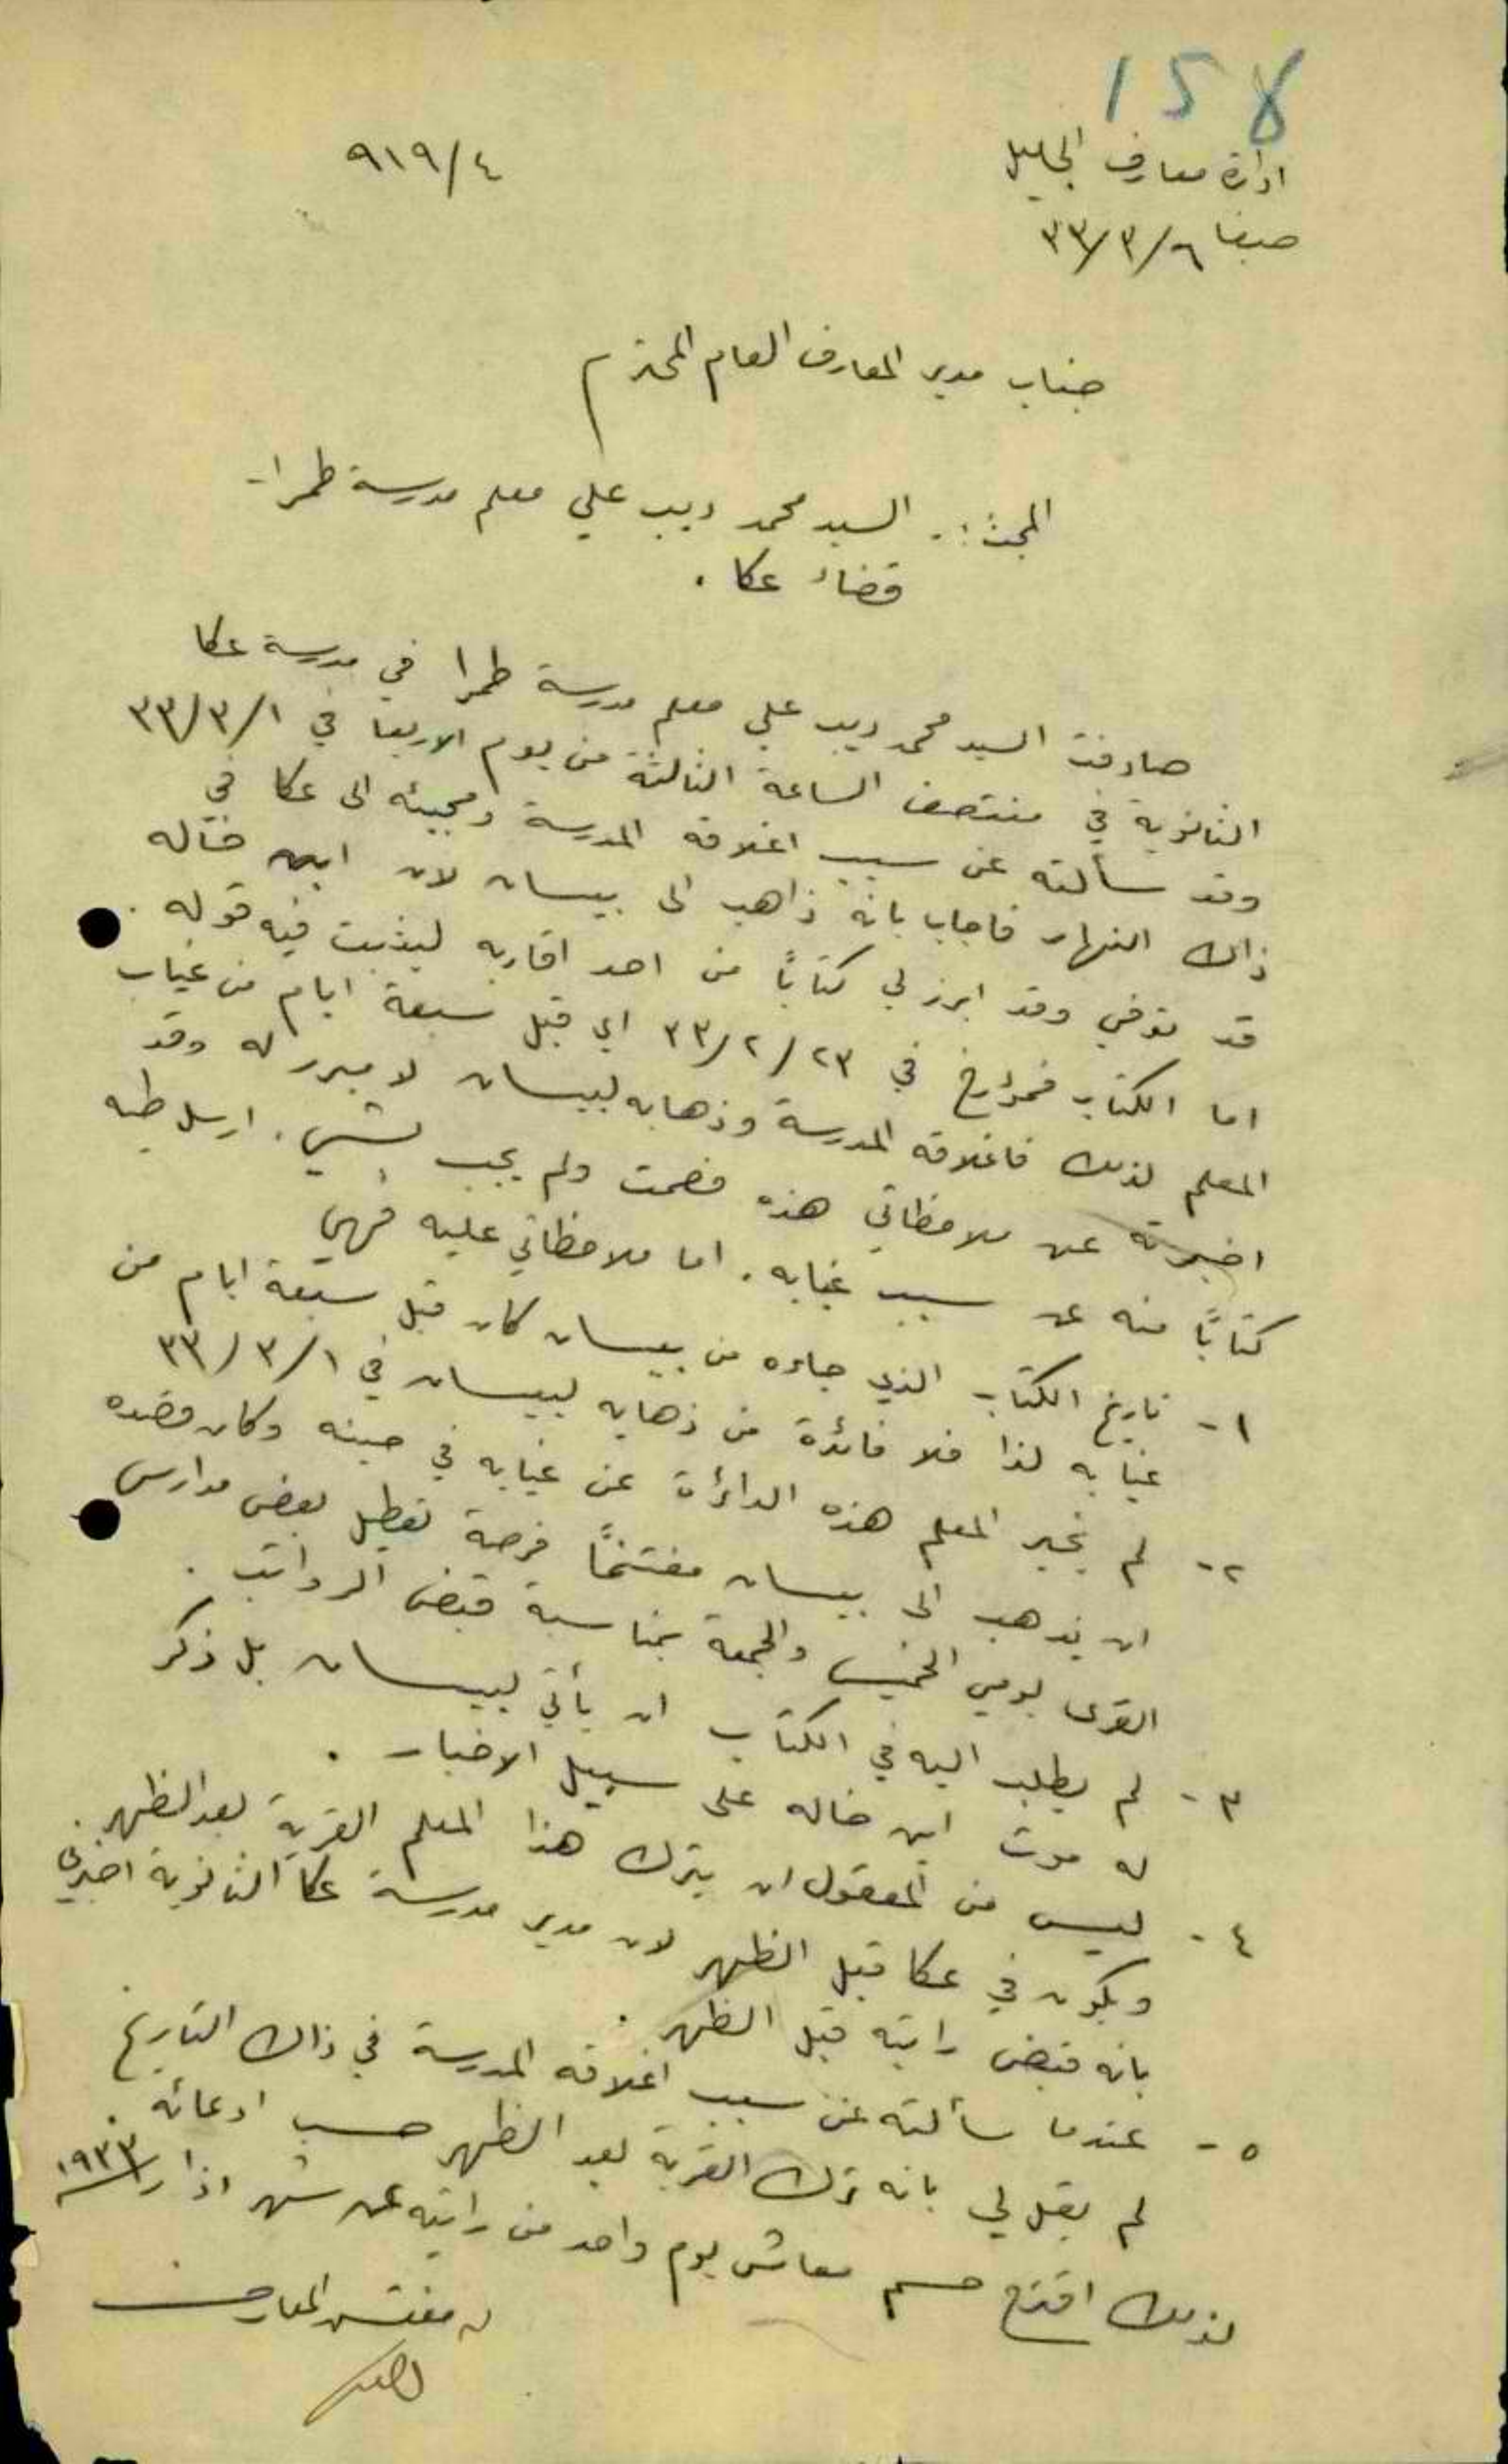 158
ادارة معارف الجليل
٩١٩/٤
حيفا ٣٣/٣/٦
جناب مدير المعارف العام المحترم
البحث :. السيد محمد ديب علي معلم مدرسة طمرا -
قضاء عكا .
صادفت السيد محمد ديب علي معلم مدرسة طمرا في مدرسة عكا
الثانوية في منتصف الساعة الثالثة من يوم الاربعا في ٣٣/٣/١
وقد سألته عن سبب اغلاقه المدرسة ومجيئه الى عكا في
ذاك النهار فاجاب بانه ذاهب الى بيسان لان ابن خاله
قد توفي وقد ابرز لي كتابًا من احد اقاربه ليثبت فيه قوله .
اما الكتاب فمؤرخ في ٣٣/٢/٢٣ اي قبل سبعة ايام من غياب
المعلم لذلك فاغلاقه المدرسة وذهابه لبيسان لا مبرر له وقد
اخبرته عن ملاحظاتي هذه فصمت ولم يجب بشيء . ارسل طيه
كتابًا منه عن سبب غيابه . اما ملاحظاتي عليه فهي
١ - تاريخ الكتاب الذي جاءه من بيسان كان قبل سبعة ايام من
غيابه لذا فلا فائدة من ذهابه لبيسان في ٣٣/٣/١
٢ - لم يخبر المعلم هذه الدائرة عن غيابه في حينه وكان قصده
ان يذهب الى بيسان مغتنمًا فرصة تعطيل بعض مدارس
القرى يومي الخميس والجمعة بمناسبة قبض الرواتب .
٣ - لم يطلب اليه في الكتاب ان يأتي لبيسان بل ذكر
له موت ابن خاله على سبيل الاخبار .
٤ - ليس من المعقول ان يترك هذا المعلم القرية بعد الظهر .
ويكون في عكا قبل الظهر لان مدير مدرسة عكا الثانوية اخبرني
بانه قبض راتبه قبل الظهر .
٥ - عندما سألته عن سبب اغلاقه المدرسة في ذاك التاريخ
لم يقل لي بانه ترك القرية بعد الظهر حسب ادعائه .
لذلك اقترح حسم معاش يوم واحد من راتبه عن شهر اذار ١٩٣٣
مفتش المعارف